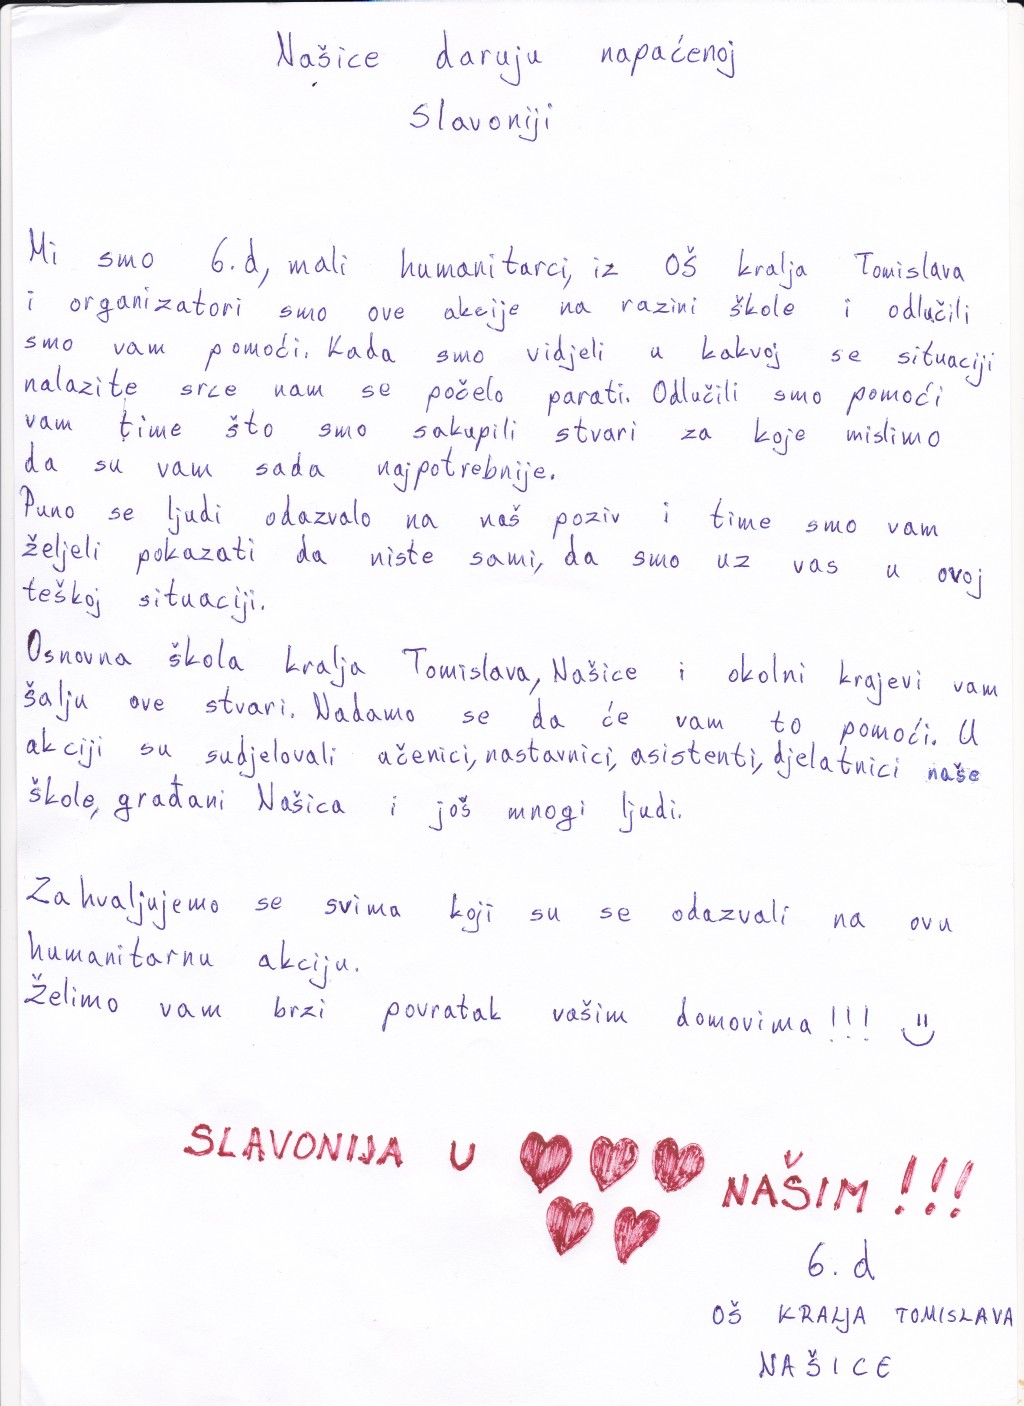 Našice daruju napaćenoj
Slavoniji
Mi smo 6.d, mali humanitarci, iz OŠ kralja Tomislava
i organizatori smo ove akcije na razini škole i odlučili
smo vam pomoći. Kada smo vidjeli u kakvoj se situaciji
nalazite srce nam se počelo parati. Odlučili smo pomoći
vam time što smo sakupili stvari za koje mislimo
da su vam sada najpotrebnije.
Puno se ljudi odazvalo na naš poziv i time smo vam
željeli pokazati da niste sami, da smo uz vas u ovoj
teškoj situaciji.
Osnovna škola kralja Tomislava, Našice i okolni krajevi vam
šalju ove stvari. Nadamo se da će vam to pomoći. U
akciji su sudjelovali ačenici, nastavnici, asistenti, djelatnici naše
škole, građani Našica i još mnogi ljudi.
Zahvaljujemo se svima koji su se odazvali na ovu
humanitarnu akciju.
Želimo vam brzi povratak vašim domovima!!!
SLAVONIJA U NAŠIM!!!
6.d
OŠ KRALJA TOMISLAVA
NAŠICE